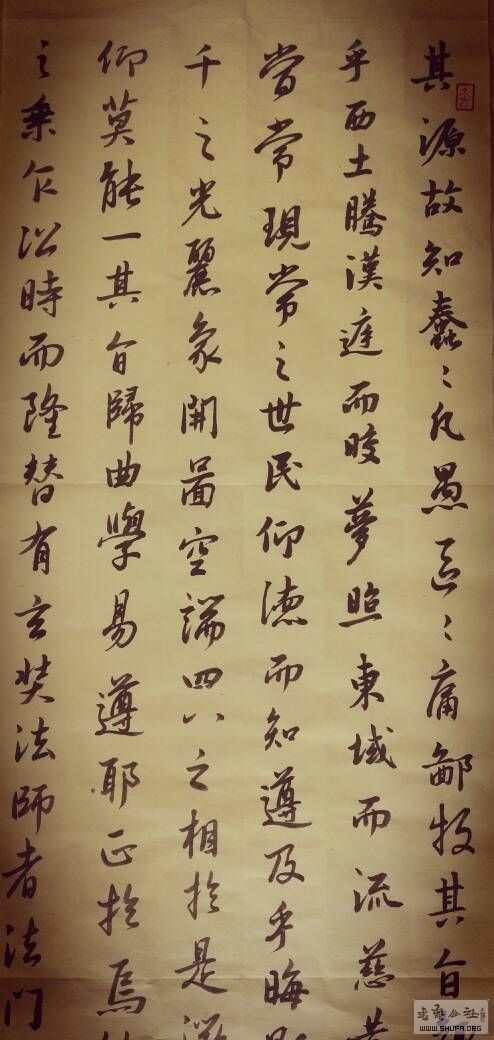 其源故知蠢〻凡愚區〻庸鄙投其旨
乎西土騰漢庭而皎夢照東域而流慈
當常現常之世民仰德而知遵及乎晦影
千之光麗象開圖空端四八之相於是微
仰莫能一其旨歸曲學易遵耶正於焉
之乘乍沿時而隆替有玄奘法師者法門
WWW.SHUFA.ORG